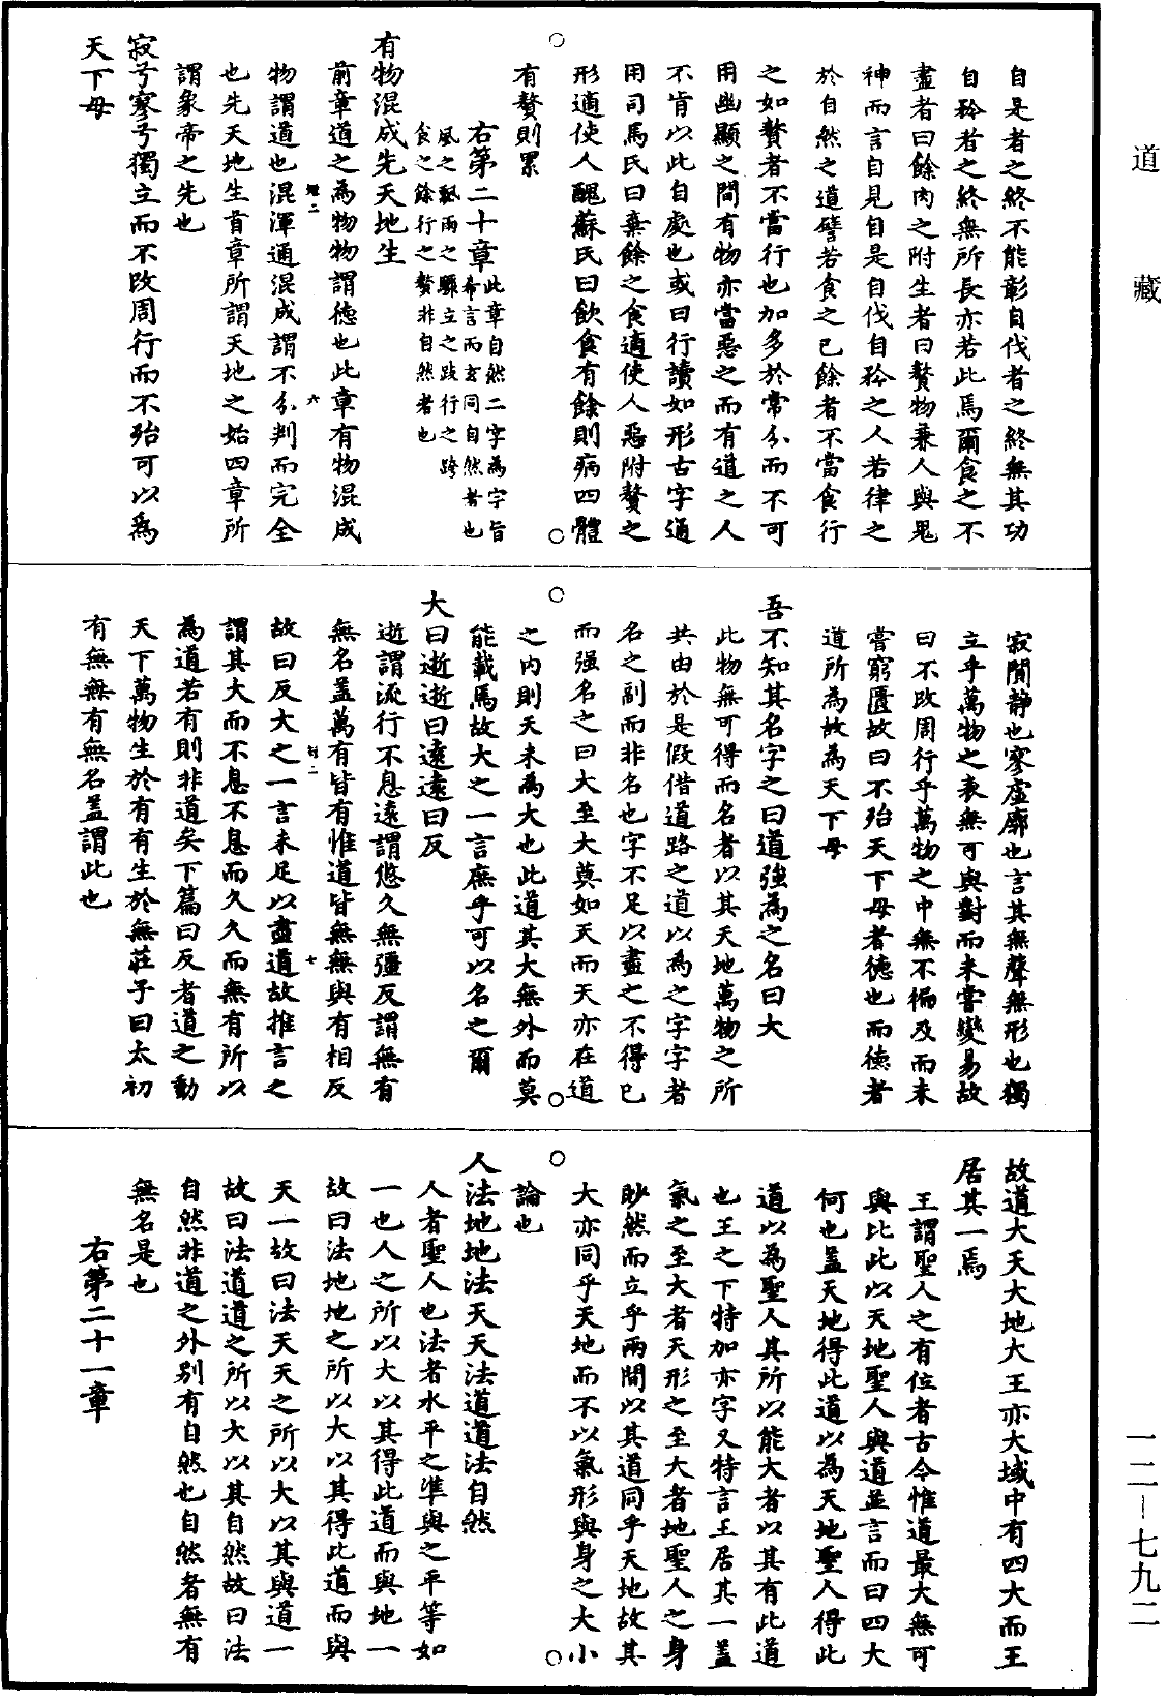 道藏
自是者之終不能彰自伐者之終無其功
自矜者之終無所長亦若此焉爾食之不
盡者曰餘肉之附生者曰贅物兼人與鬼
神而言自見自是自伐自矜之人若律之
於自然之道譬若食之已餘者不當食行
之如贅者不當行也加多於常分而不可
用幽顯之間有物亦當惡之而有道之人
不肯以此自處也或曰行讀如形古字通
用司馬氏曰棄餘之食適使人惡附贅之
形適使人醜蘇氏曰飲食有餘則病四體
有贅則累
右第二十章此章自然二字為字旨
希言而玄同自然者也
風之飄雨之驟立之跂行之跨
食之餘行之贅非自然者也
有物混成先天地生
前章道之為物物謂德也此章有物混成
六
物謂道也混渾通混成謂不分判而完全
也先天地生首章所謂天地之始四章所
謂象帝之先也
寂兮寥兮獨立而不改周行而不殆可以為
天下母
寂閒靜也寥虛廓也言其無聲無形也獨
立乎萬物之表無可與對而未嘗變易故
曰不改周行乎萬物之中無不徧及而未
嘗窮匱故曰不殆天下母者德也而德者
道所為故為天下母
吾不知其名字之曰道強為之名曰大
此物無可得而名者以其天地萬物之所
共由於是假借道路之道以為之字字者
名之副而非名也字不足以盡之不得已
而强名之曰大至大莫如天而天亦在道
之内則天未為大也此道其大無外而莫
能載焉故大之一言庶乎可以名之爾
大曰逝逝曰遠遠曰反
逝謂流行不息遠謂悠久無彊反謂無有
無名蓋萬有皆有惟道皆無無與有相反
七
故曰反大之一言未足以盡道故推言之
謂其大而不息不息而久久而無有所以
為道若有則非道矣下篇曰反者道之動
天下萬物生於有有生於無莊子曰太初
有無無有無名蓋謂此也
故道大天大地大王亦大域中有四大而王
居其一焉
王謂聖人之有位者古今惟道最大無可
與比此以天地聖人與道並言而曰四大
何也蓋天地得此道以為天地聖人得此
道以為聖人其所以能大者以其有此道
也王之下特加亦字又特言王居其一蓋
氣之至大者天形之至大者地聖人之身
眇然而立乎兩間以其道同乎天地故其
大亦同乎天地而不以氣形與身之大小
論也
人法地地法天天法道道法自然
人者聖人也法者水平之準與之平等如
一也人之所以大以其得此道而與地一
故曰法地地之所以大以其得此道而與
天一故曰法天天之所以大以其與道一
故曰法道道之所以大以其自然故曰法
自然非道之外別有自然也自然者無有
無名是也
右第二十一章
一二—七九二